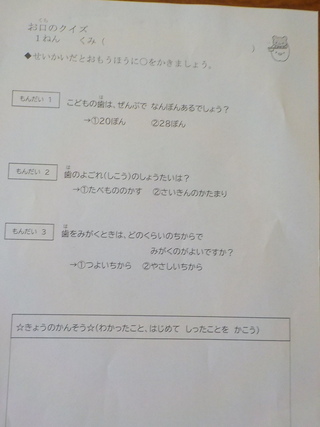 お口のクイズ
くち
1ねん くみ( )
◆せいかいだとおもうほうに○をかきましょう。
もんだい 1
は
こどもの歯は、ぜんぶで なんぼんあるでしょう?
→①20ぽん ②28ぽん
もんだい 2
は
歯のよごれ(しこう)のしょうたいは?
→①たべもののかす ②さいきんのかたまり
もんだい 3
は
歯をみがくときは、どのくらいのちからで
みがくのがよいですか?
→①つよいちから ②やさしいちから
☆きょうのかんそう☆(わかったこと、はじめて しったことを かこう)